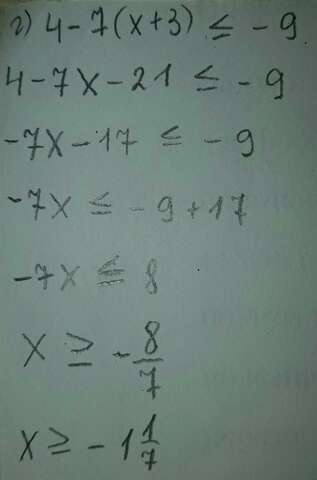 г) 4 - 7(x+3) ≤ - 9
4 - 7x - 21 ≤ - 9
-7x - 17 ≤ - 9
-7x ≤ - 9 + 17
-7x ≤ 8
x ≥ - 8/7
x ≥ - 1 1/7